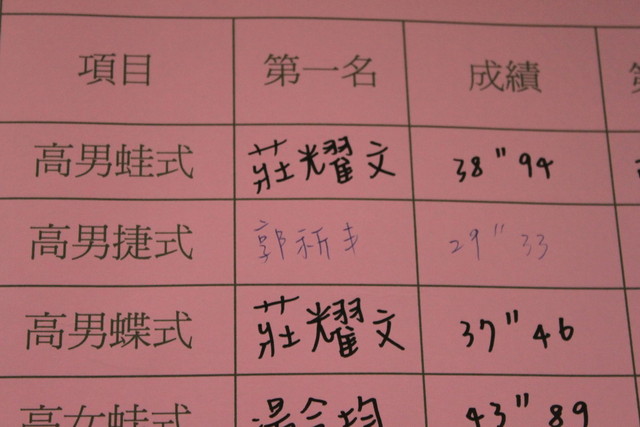 項目 第一名 成績
高男蛙式 莊耀文 38"94
高男捷式 29"33
高男蝶式 莊耀文 37"46
高女蛙式 43"89